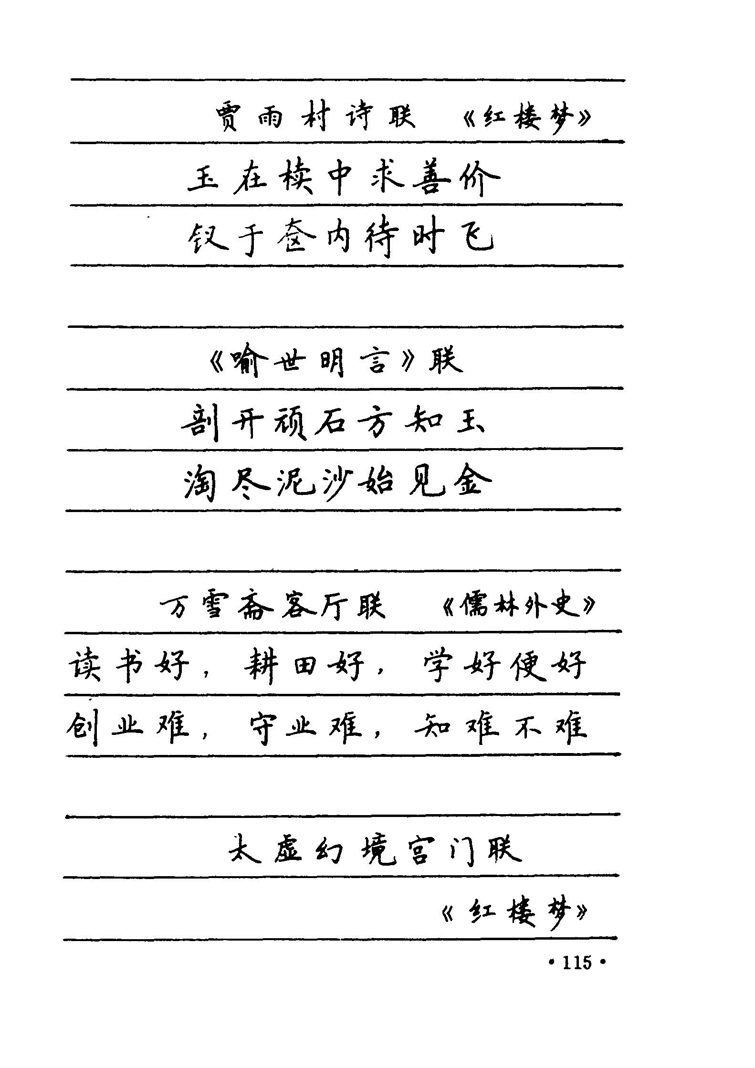 贾雨村诗联 《红楼梦》
玉在椟中求善价
钗于奁内待时飞
《喻世明言》联
剖开顽石方知玉
淘尽泥沙始见金
万雪斋客厅联 《儒林外史》
读书好，耕田好，学好便好
创业难，守业难，知难不难
太虚幻境宫门联
《红楼梦》
·115·